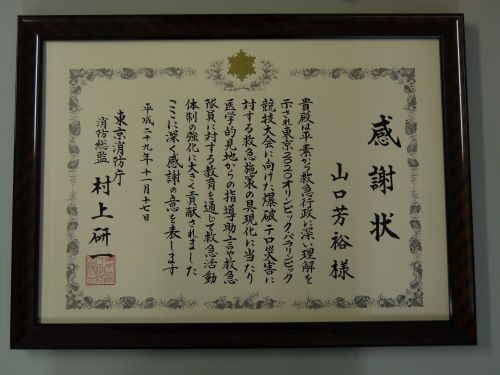 感謝状
山口芳裕 様
貴殿は平素から救急行政に深い理解を
示され東京2020オリンピック・パラリンピック
競技大会に向けた爆破テロ災害に
対する救急施策の具現化に当たり
医学的見地からの指導・助言や救急
隊員に対する教育を通じて救急活動
体制の強化に大きく貢献されました
ここに深く感謝の意を表します
平成二十九年十一月十七日
東京消防庁
消防総監 村上研一